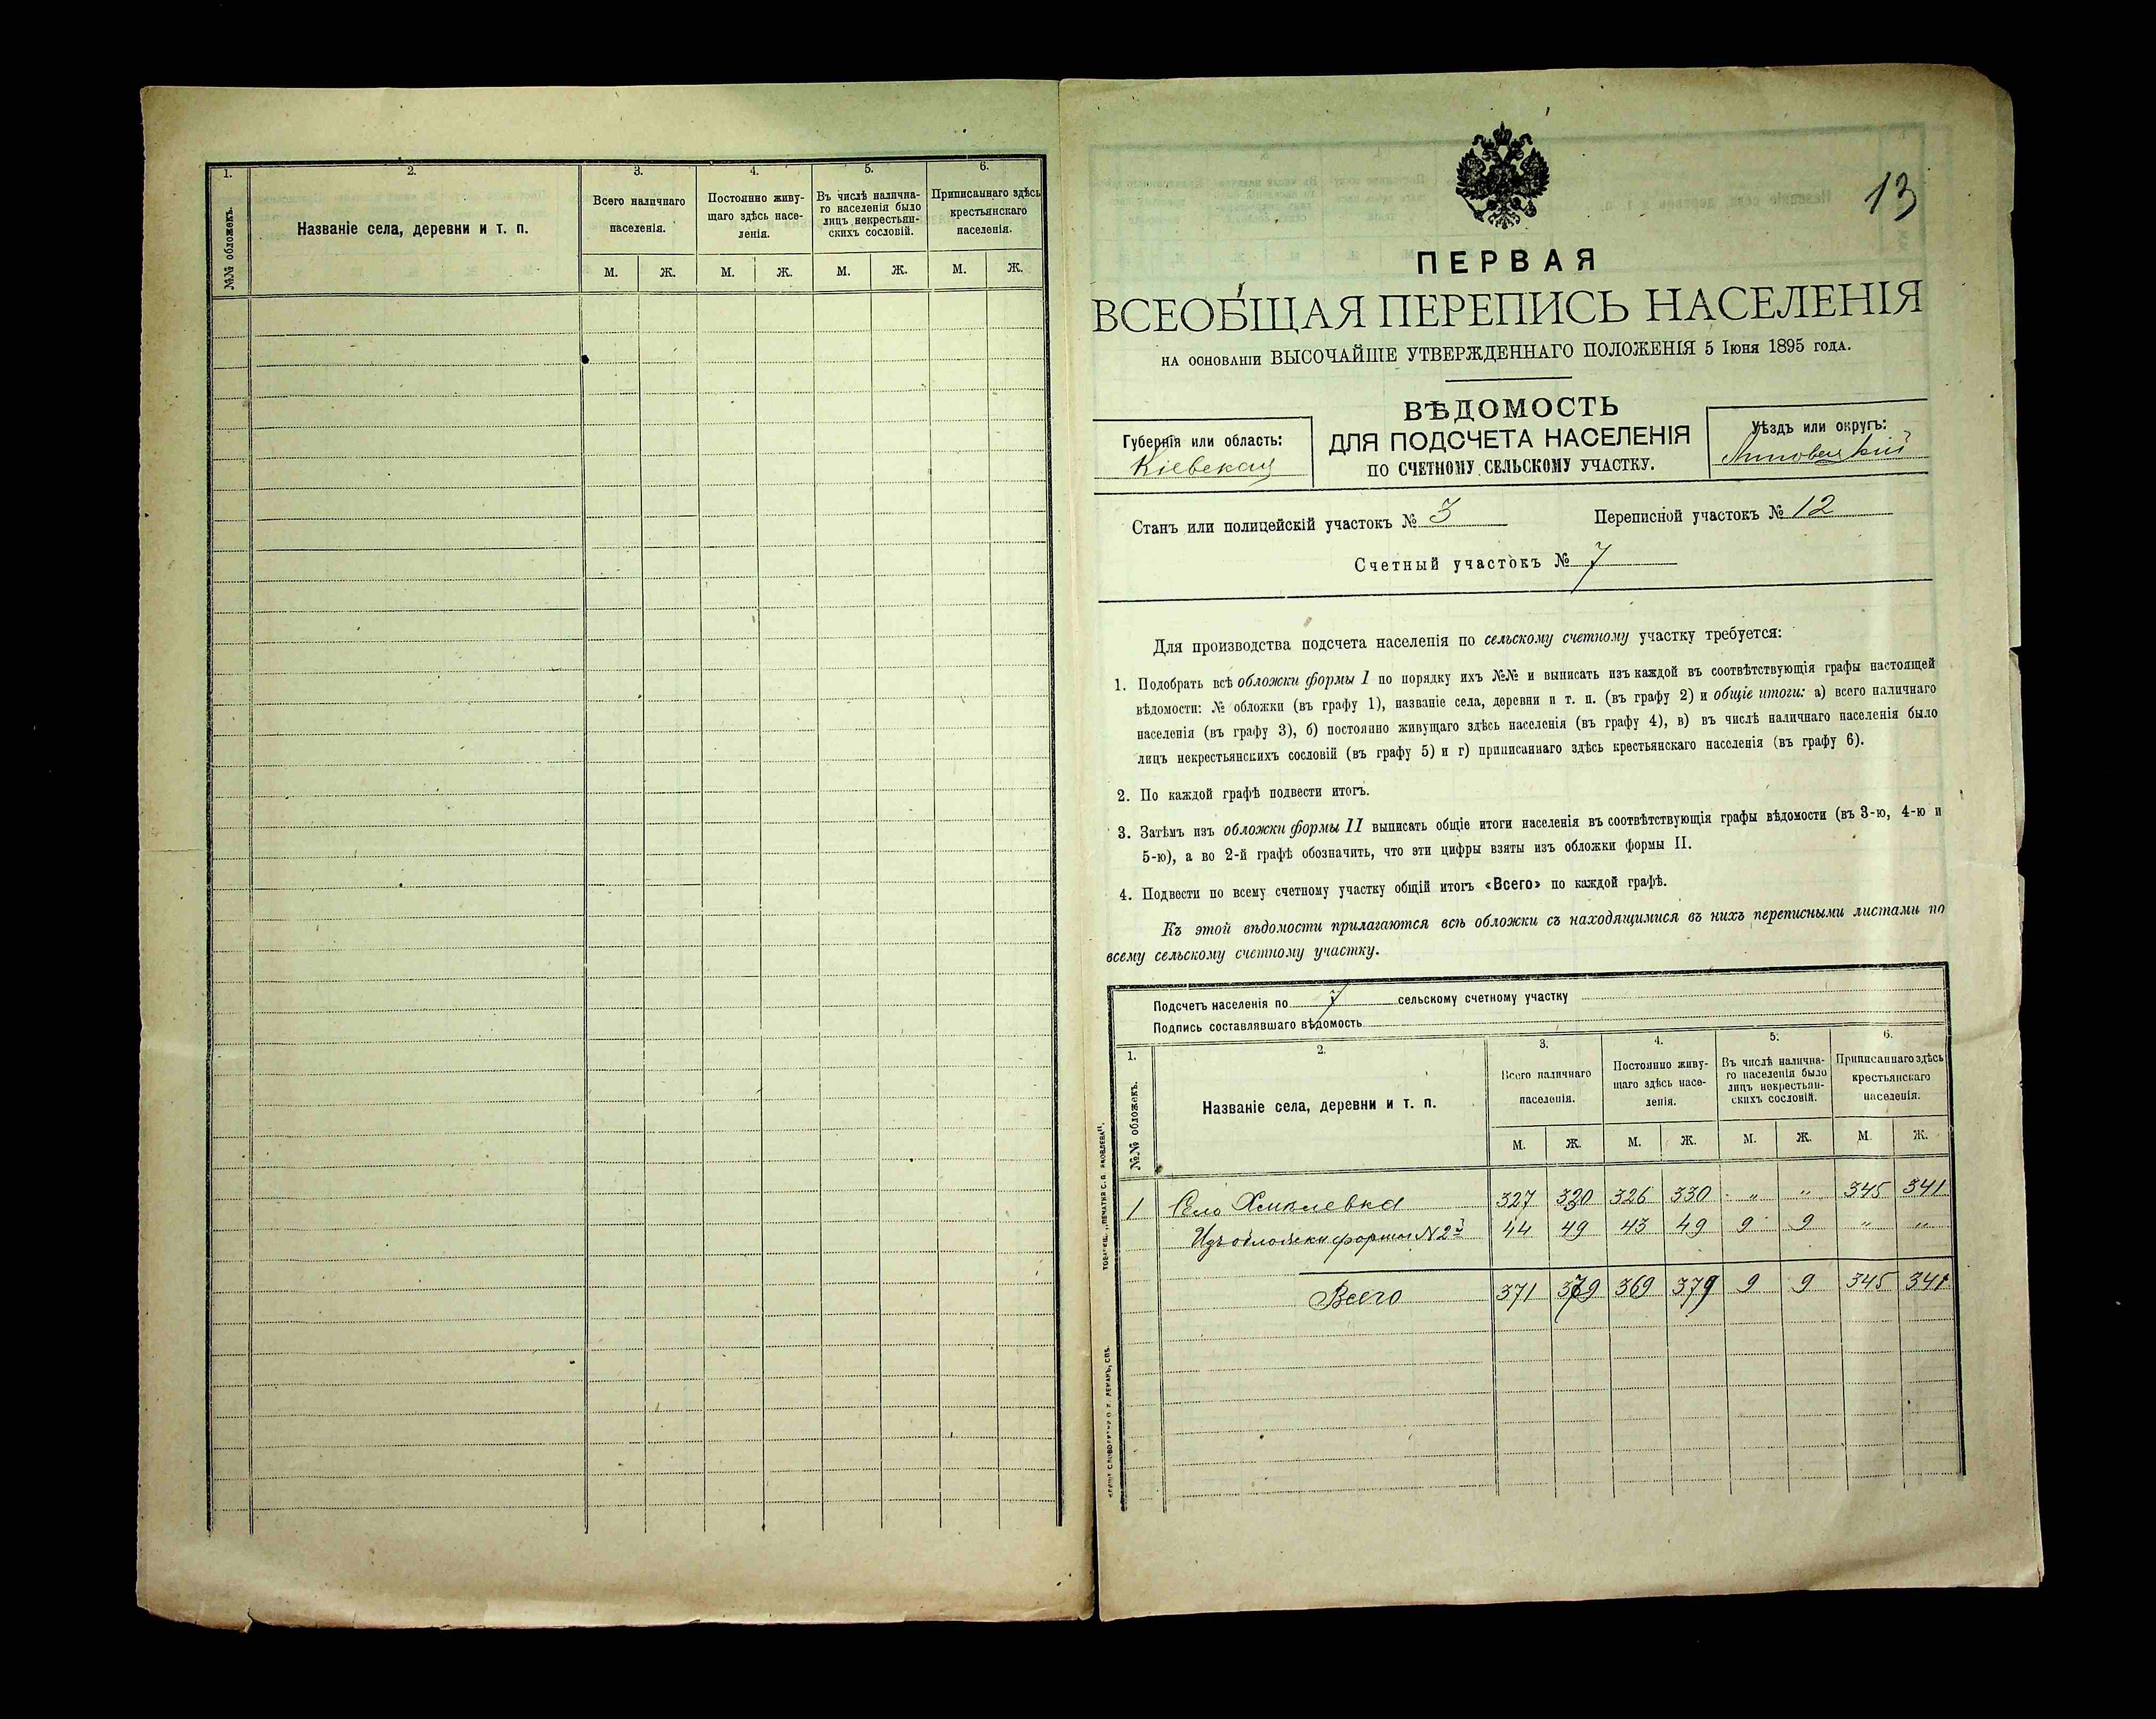 1.
2.
3.
4.
5.
6.
№№ обложекъ.
Названіе села, деревни и т. п.
Всего наличнаго
населенія.
Постоянно живу-
щаго здѣсь насе-
ленія.
Въ числѣ налична-
го населенія было
лицъ некрестьян-
скихъ сословій.
Приписаннаго здѣсь
крестьянскаго
населенія.
М. Ж. М. Ж. М. Ж. М. Ж.
13
ПЕРВАЯ
ВСЕОБЩАЯ ПЕРЕПИСЬ НАСЕЛЕНІЯ
НА ОСНОВАНІИ ВЫСОЧАЙШЕ УТВЕРЖДЕННАГО ПОЛОЖЕНІЯ 5 Іюня 1895 ГОДА.
ВѢДОМОСТЬ
ДЛЯ ПОДСЧЕТА НАСЕЛЕНІЯ
ПО СЧЕТНОМУ СЕЛЬСКОМУ УЧАСТКУ.
Губернія или область:
Кіевская
Уѣздъ или округъ:
Липовецкій
Станъ или полицейскій участокъ № 3 Переписной участокъ № 12
Счетный участокъ № 7
Для производства подсчета населенія по сельскому счетному участку требуется:
1. Подобрать всѣ обложки формы I по порядку ихъ №№ и выписать изъ каждой въ соотвѣтствующія графы настоящей
вѣдомости: № обложки (въ графу 1), названіе села, деревни и т. п. (въ графу 2) и общіе итоги: а) всего наличнаго
населенія (въ графу 3), б) постоянно живущаго здѣсь населенія (въ графу 4), в) въ числѣ наличнаго населенія было
лицъ некрестьянскихъ сословій (въ графу 5) и г) приписаннаго здѣсь крестьянскаго населенія (въ графу 6).
2. По каждой графѣ подвести итогъ.
3. Затѣмъ изъ обложки формы II выписать общіе итоги населенія въ соотвѣтствующія графы вѣдомости (въ 3-ю, 4-ю и
5-ю), а во 2-й графѣ обозначить, что эти цифры взяты изъ обложки формы II.
4. Подвести по всему счетному участку общій итогъ «Всего» по каждой графѣ.
Къ этой вѣдомости прилагаются всѣ обложки съ находящимися въ нихъ переписными листами по
всему сельскому счетному участку.
Подсчетъ населенія по 7 сельскому счетному участку
Подпись составлявшаго вѣдомость
1.
2.
3.
4.
5.
6.
№№ обложекъ.
Названіе села, деревни и т. п.
Всего наличнаго
населенія.
Постоянно живу-
щаго здѣсь насе-
ленія.
Въ числѣ налична-
го населенія было
лицъ некрестьян-
скихъ сословій.
Приписаннаго здѣсь
крестьянскаго
населенія.
М. Ж. М. Ж. М. Ж. М. Ж.
1 Село 327 330 326 330 „ „ 345 341
Изъ обложки формы № 2й 44 49 43 49 9 9 „ „
Всего 371 379 369 379 9 9 345 341
ТОВАРИЩ. „ПЕЧАТНЯ С. П. ЯКОВЛЕВА“.